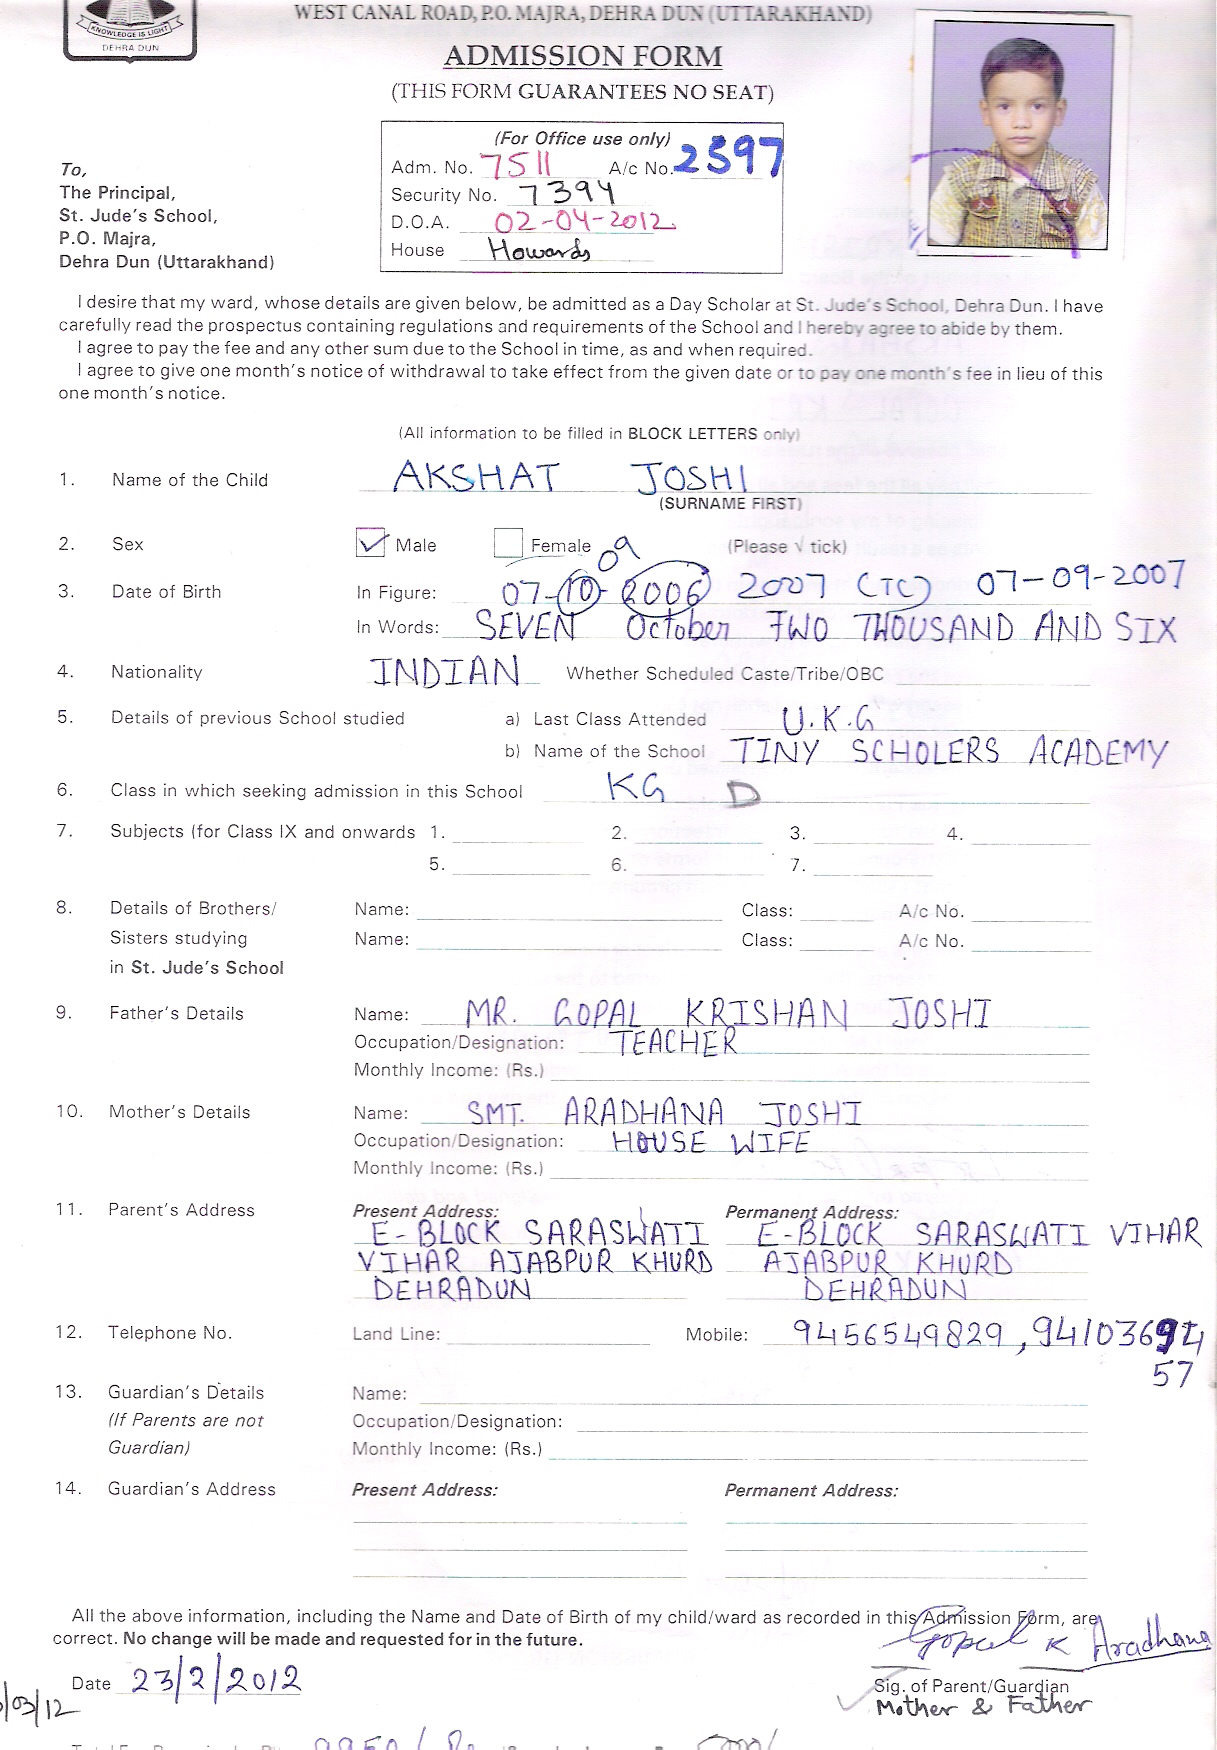 KNOWLEDGE IS LIGHT
DEHRA DUN
WEST CANAL ROAD, P.O. MAJRA, DEHRA DUN (UTTARAKHAND)
ADMISSION FORM
(THIS FORM GUARANTEES NO SEAT)
(For Office use only)
Adm. No. 7511 A/c No. 2397
Security No. 7394
D.O.A. 02-04-2012
House Howards
To,
The Principal,
St. Jude's School,
P.O. Majra,
Dehra Dun (Uttarakhand)
I desire that my ward, whose details are given below, be admitted as a Day Scholar at St. Jude's School, Dehra Dun. I have
carefully read the prospectus containing regulations and requirements of the School and I hereby agree to abide by them.
I agree to pay the fee and any other sum due to the School in time, as and when required.
I agree to give one month's notice of withdrawal to take effect from the given date or to pay one month's fee in lieu of this
one month's notice.
(All information to be filled in BLOCK LETTERS only)
1. Name of the Child AKSHAT JOSHI
(SURNAME FIRST)
2. Sex Male Female (Please √ tick)
09
3. Date of Birth In Figure: 07-10-2006 2007 (TC) 07-09-2007
In Words: SEVEN October TWO THOUSAND AND SIX
4. Nationality INDIAN Whether Scheduled Caste/Tribe/OBC
5. Details of previous School studied a) Last Class Attended U.K.G
b) Name of the School TINY SCHOLERS ACADEMY
6. Class in which seeking admission in this School KG D
7. Subjects (for Class IX and onwards 1. 2. 3. 4.
5. 6. 7.
8. Details of Brothers/ Name: Class: A/c No.
Sisters studying Name: Class: A/c No.
in St. Jude's School
9. Father's Details Name: MR. GOPAL KRISHAN JOSHI
Occupation/Designation: TEACHER
Monthly Income: (Rs.)
10. Mother's Details Name: SMT. ARADHANA JOSHI
Occupation/Designation: HOUSE WIFE
Monthly Income: (Rs.)
11. Parent's Address Present Address: Permanent Address:
E-BLOCK SARASWATI E-BLOCK SARASWATI VIHAR
VIHAR AJABPUR KHURD AJABPUR KHURD
DEHRADUN DEHRADUN
12. Telephone No. Land Line: Mobile: 9456549829, 94103694
57
13. Guardian's Details Name:
(If Parents are not Occupation/Designation:
Guardian) Monthly Income: (Rs.)
14. Guardian's Address Present Address: Permanent Address:
All the above information, including the Name and Date of Birth of my child/ward as recorded in this Admission Form, are
correct. No change will be made and requested for in the future.
Gopal K Aradhana
Date 23/2/2012 Sig. of Parent/Guardian
Mother & Father
/03/12